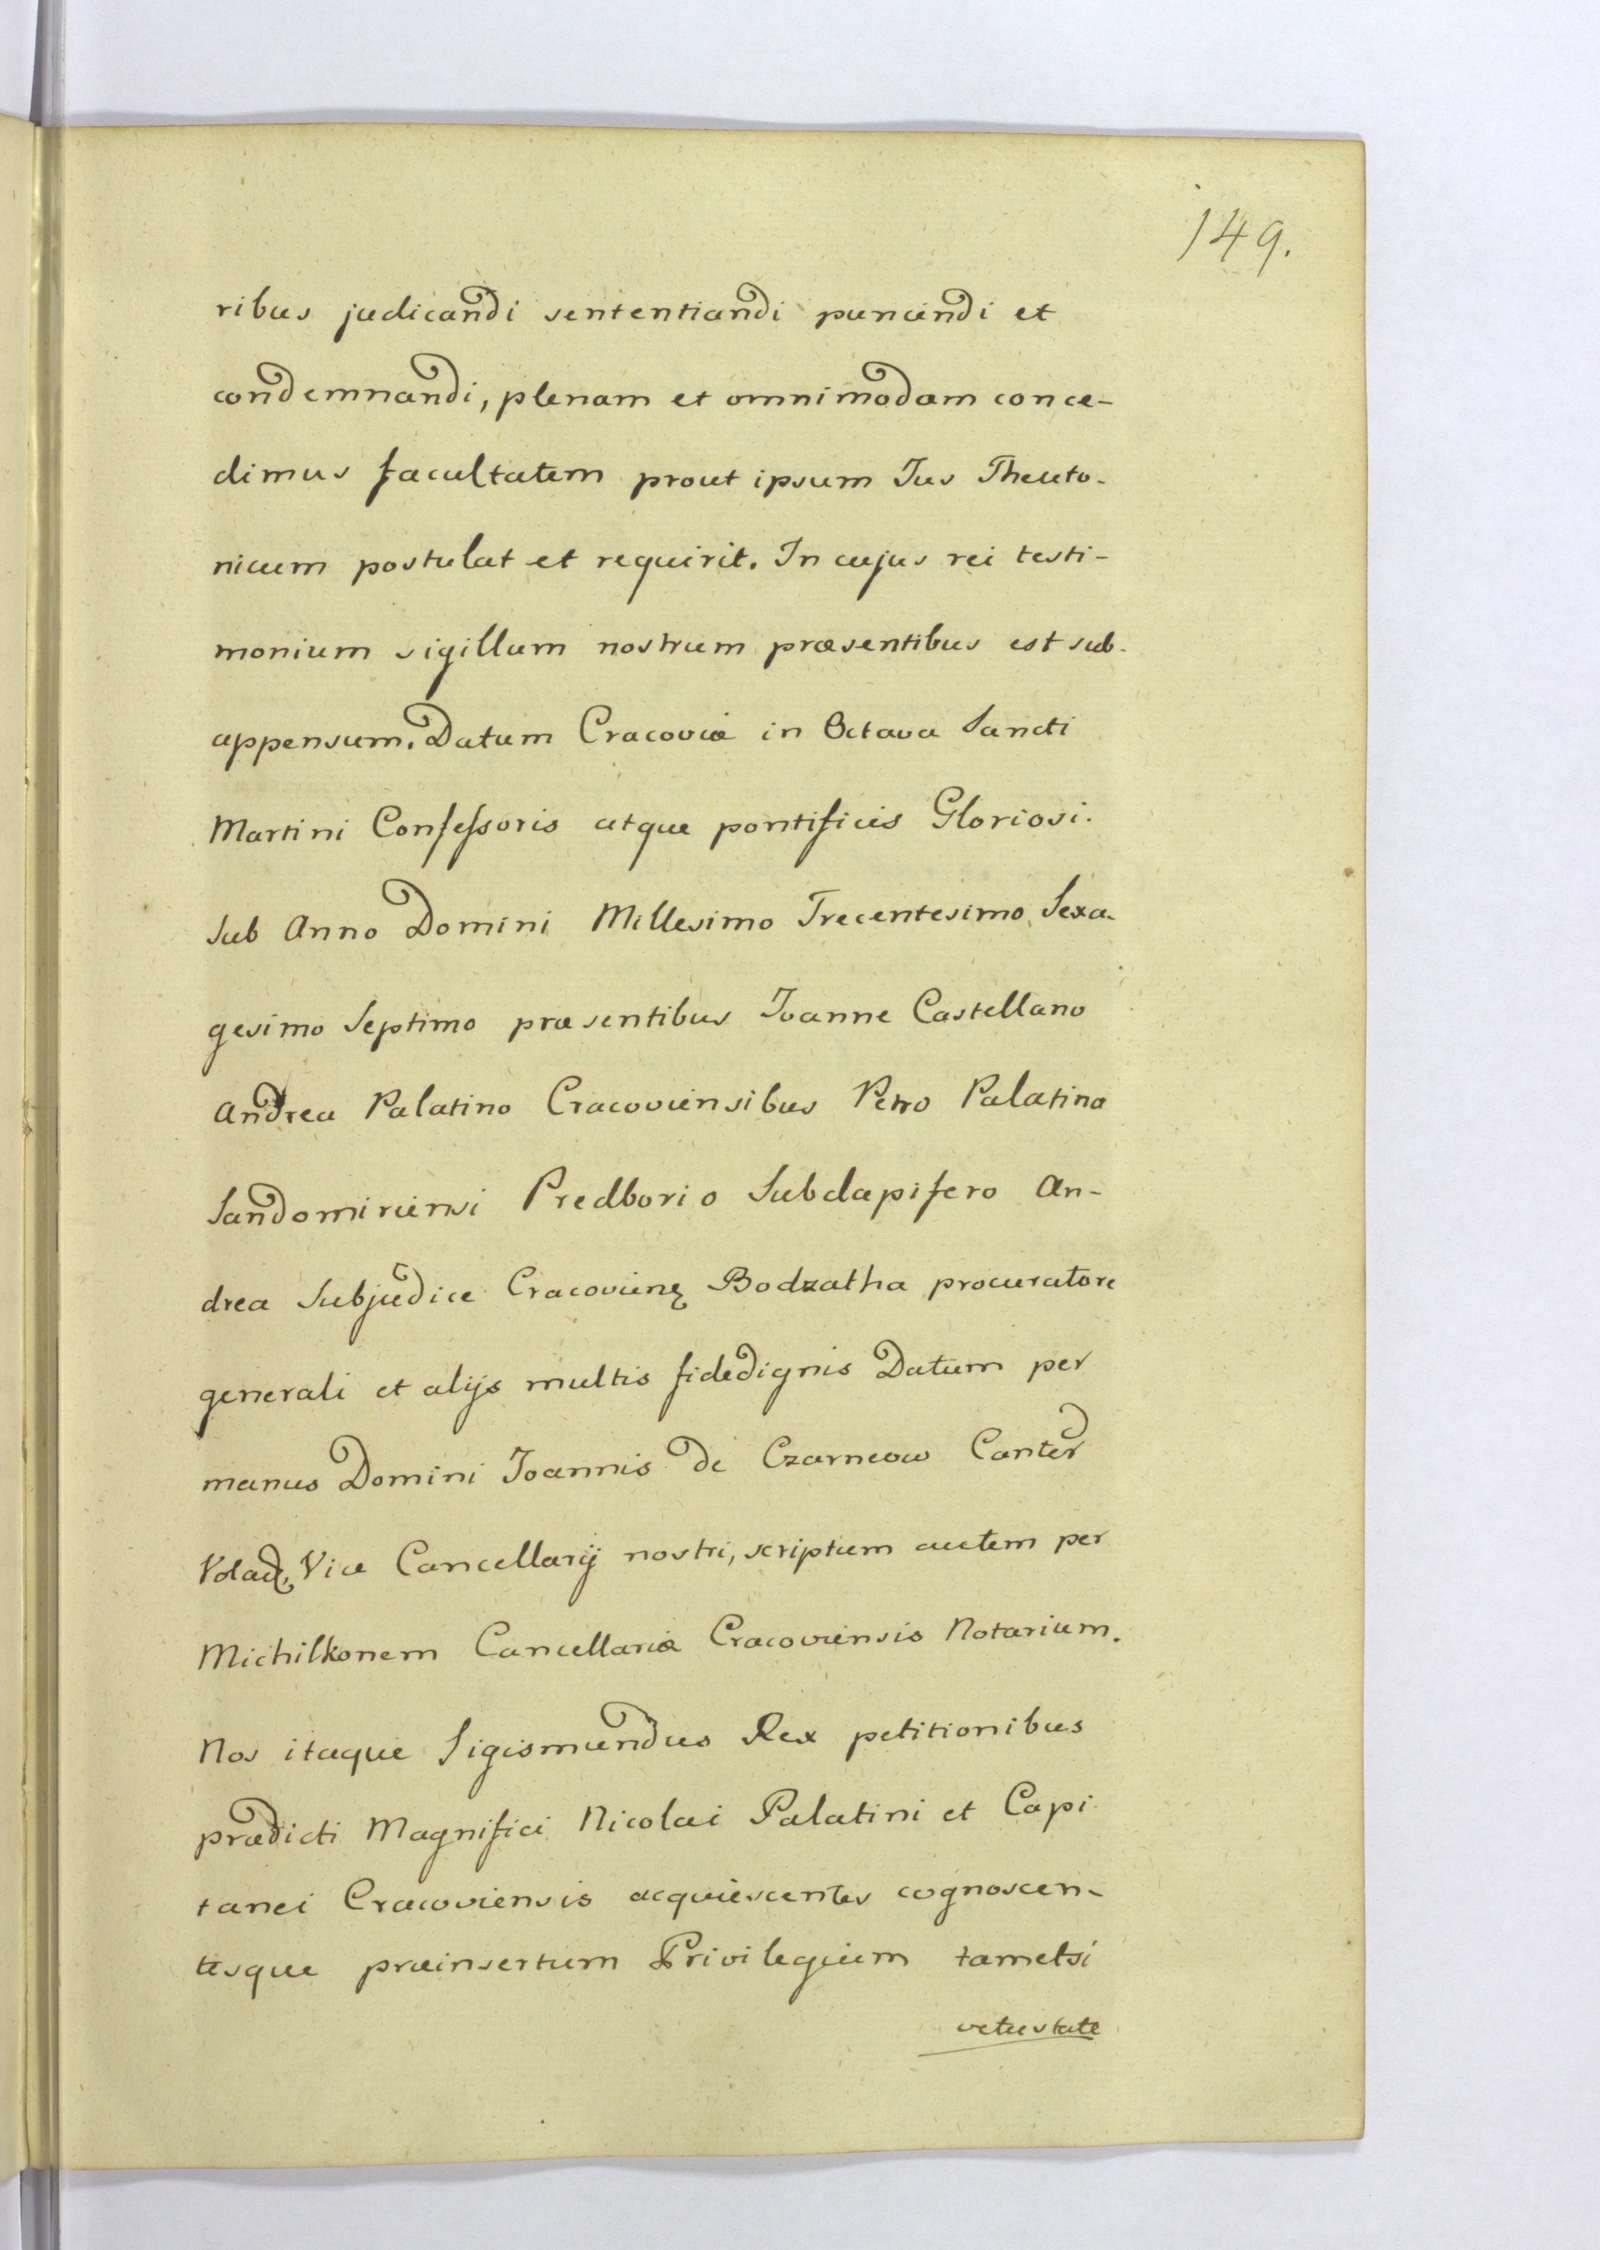 149.
ribus judicandi sententiandi puniendi et
condemnandi, plenam et omnimodam conce-
dimus facultatem prout ipsum Jus Theuto-
nicum postulat et requirit. In cujus rei testi-
monium sigillum nostrum præsentibus est sub-
appensum. Datum Cracoviæ in Octava Sancti
Martini Confessoris atque pontificis Gloriosi.
Sub Anno Domini Millesimo Trecentesimo Sexa-
gesimo Septimo præsentibus Joanne Castellano
Andrea Palatino Cracoviensibus Petro Palatino
Sandomiriensi Predborio Subdapifero An-
drea Subjudice Cracovienę Bodzatha procuratore
generali et alijs multis fidedignis Datum per
manus Domini Joannis de Czarneow Canter
Vice Cancellarij nostri, scriptum autem per
Michilkonem Cancellariæ Cracoviensis Notarium.
Nos itaque Sigismundus Rex petitionibus
prædicti Magnifici Nicolai Palatini et Capi
tanei Cracoviensis acquiescentes cognoscen-
tesque præinsertum Privilegium tametsi
vetustate